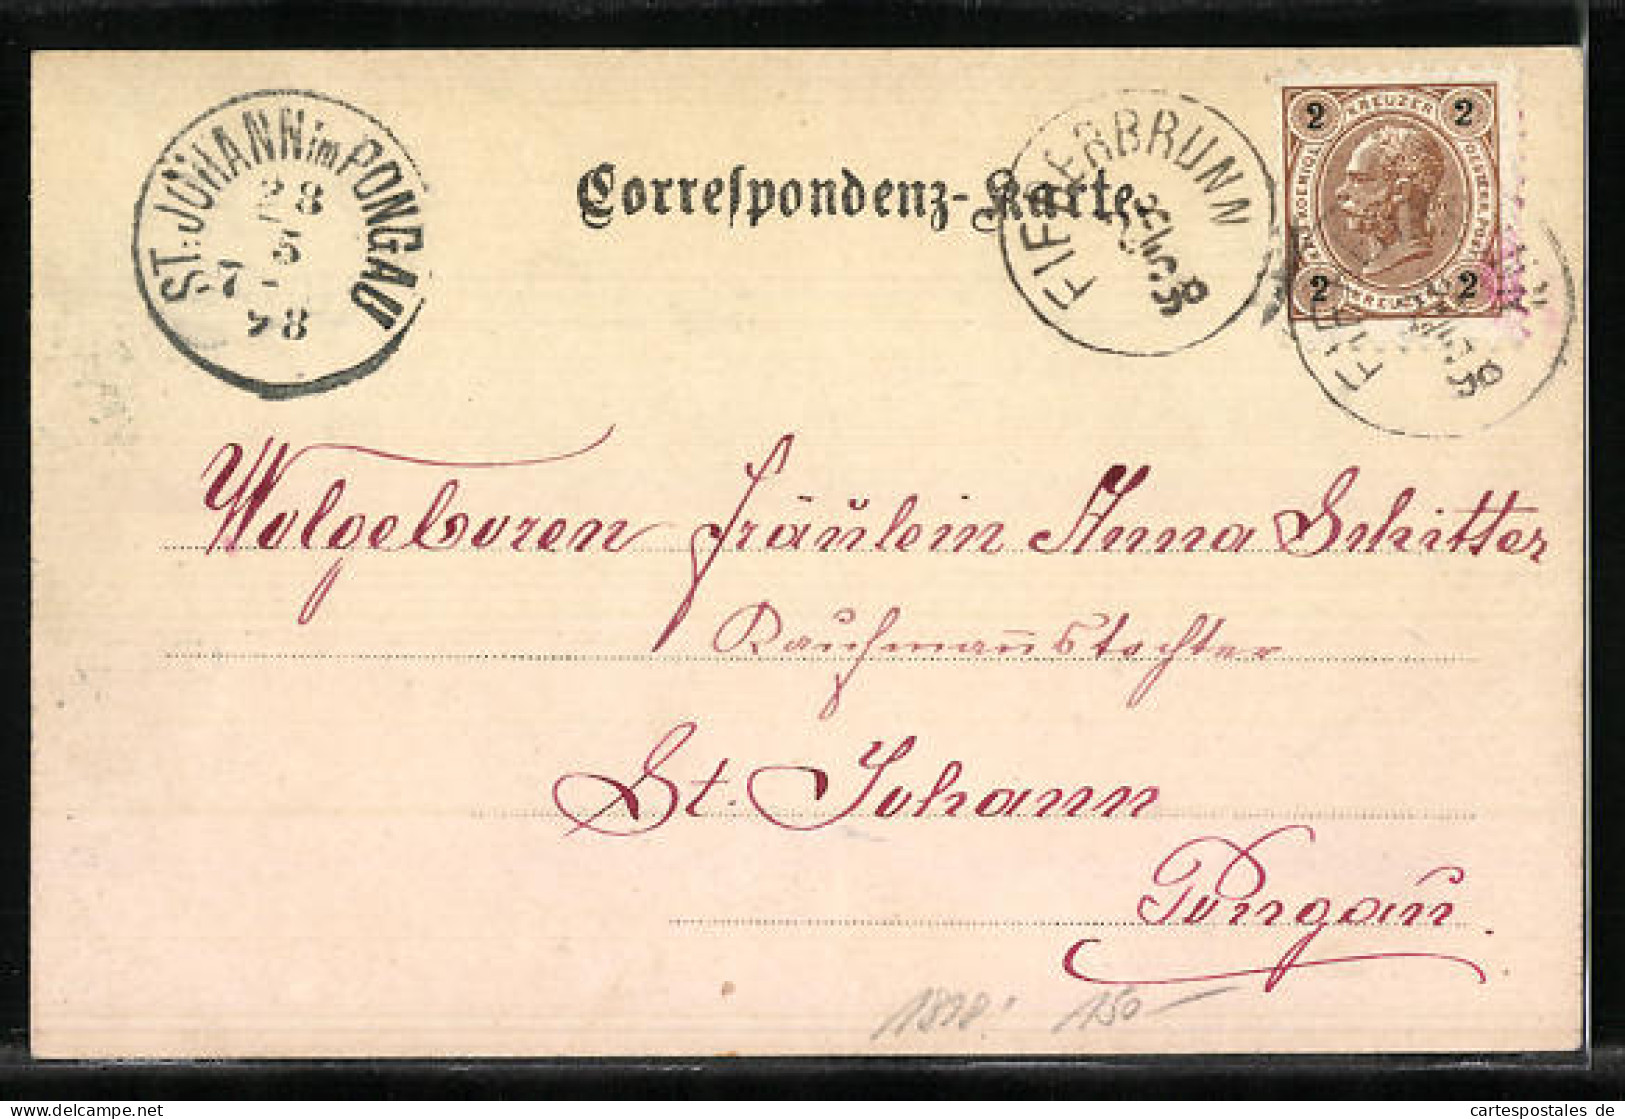 ST. JOHANN im PONGAU
28
5
7
98
Correspondenz-Karte
FIEBERBRUNN
98
2 KREUZER 2
2 KREUZER 2
Wolgeboren Fräulein Anna Schitter
Kaufmañstochter
St. Johann
Pongau.
1898! 150
cartespostales de